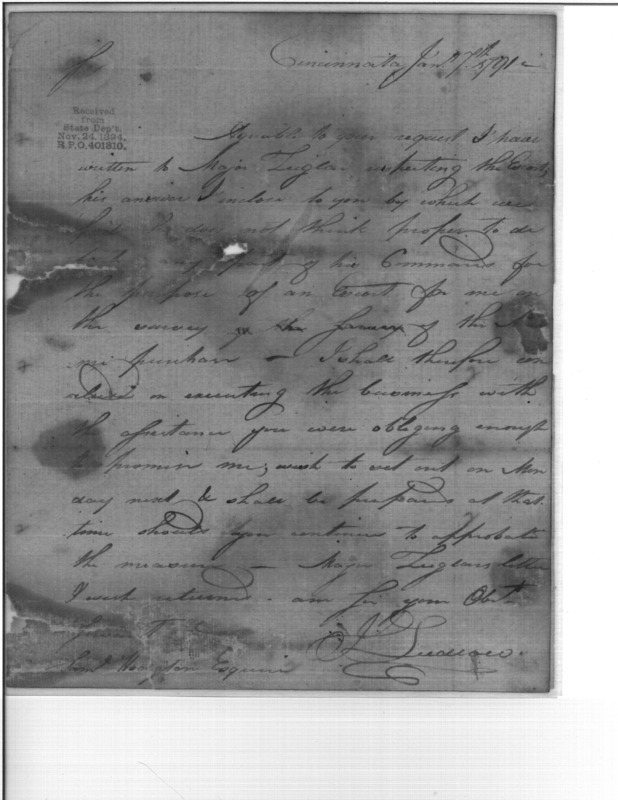 Sir Cincinnata Jany 7th 1791
Received
from
State Dep't.
Nov. 24. 1894,
R.P.O. 401810.
Agreeable to your request I have
written to Major Zeiglar respecting the Escort,
his answer I inclose to you by which
he does not think proper to de
any part of his Command for
the purpose of an Escort for me on
the survey of the
mi purchase – I shall therefore
on executing the business with
the assistance you were obliging enough
to promise me, wish to set out on Mon
day next & shall be prepared at that
time should you continue to approbate
the measure – Major Zeiglars letter
I wish returned. am Sir your Obdt
Servant
I. Ludlow.
Saml Hodgdon Esquire